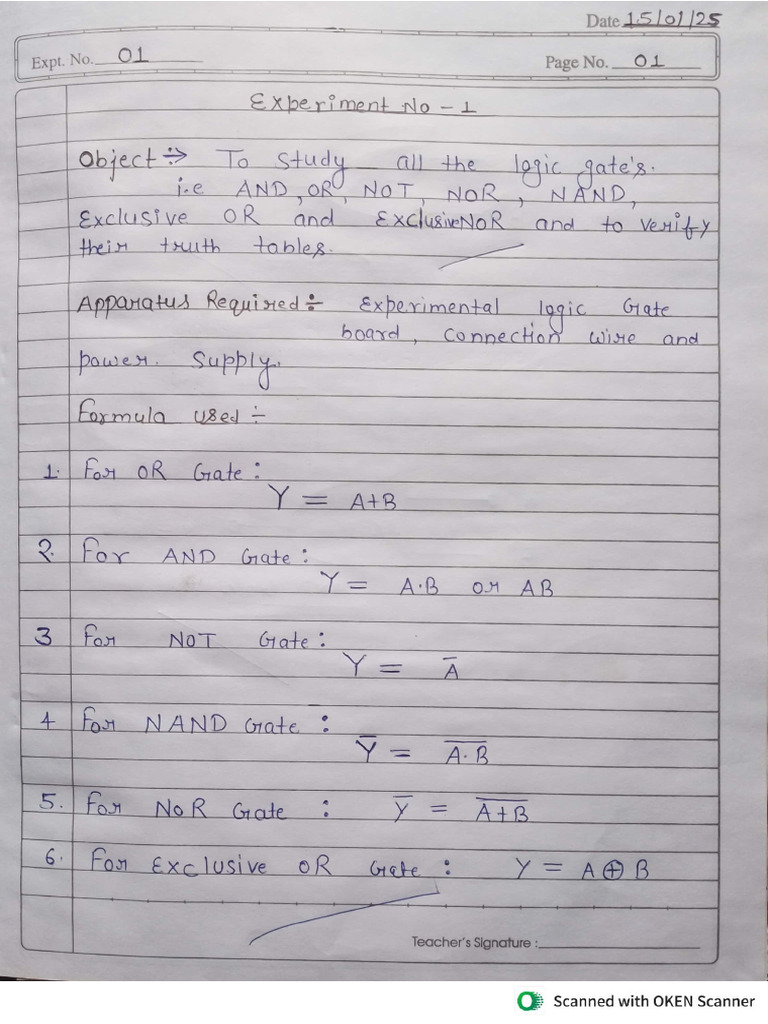 Date 15/01/25
Expt. No. 01 Page No. 01
Experiment No - 1
Object ÷> To study all the logic gate's.
i.e AND, OR, NOT, NOR, NAND,
Exclusive OR and Exclusive NOR and to verify
their truth tables.
Apparatus Required ÷ Experimental logic Gate
board, connection wire and
power. Supply.
Formula used ÷
1. For OR Gate:
Y = A+B
2. For AND Gate:
Y = A·B or AB
3 For NOT Gate:
Y = A̅
4 For NAND Gate:
Y̅ = A̅·̅B̅
5. For NOR Gate : Y̅ = A̅+̅B̅
6. For Exclusive OR Gate : Y = A⊕B
Teacher's Signature :
Scanned with OKEN Scanner